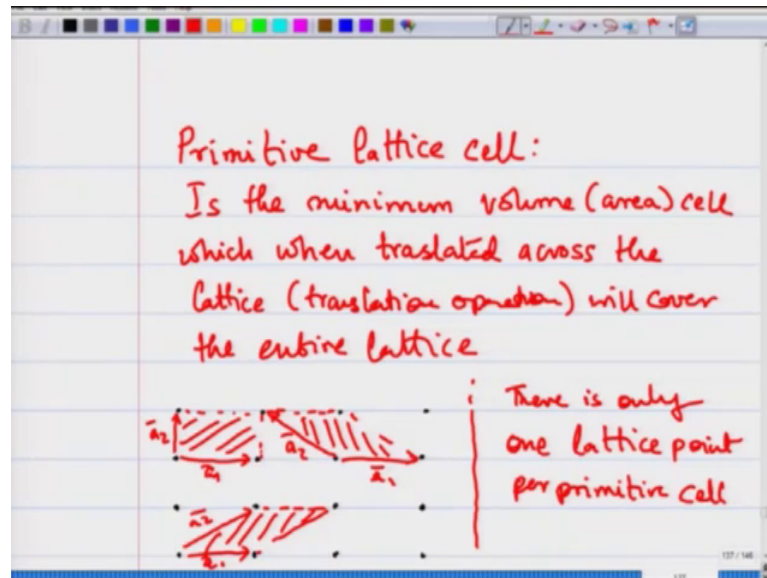 Primitive lattice cell:
Is the minimum volume (area) cell
which when traslated across the
lattice (translation operation) will cover
the entire lattice
There is only
one lattice point
per primitive cell
a̅₂
a̅₁
a̅₂
a̅₁
a̅₂
a̅₁
137 / 148